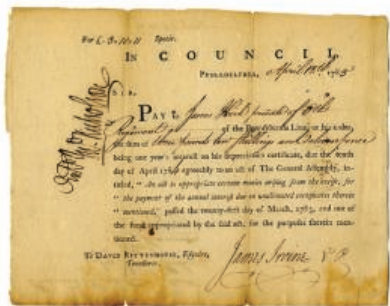 For £ 3 10 11 Specie.
IN COUNCIL,
PHILADELPHIA, April 178
SIR,
PAY to James
Regiment of the Pennsylvania Line, or his order,
the sum of three pounds ten shillings and eleven pence
being one year's interest on his depreciation certificate, due the tenth
day of April 178 agreeably to an act of The General Assembly, in-
titled, "An act to appropriate certain monies arising from the excise, for
" the payment of the annual interest due on unalienated certificates therein
" mentioned," passed the twenty-first day of March, 1783, and out of
the fund appropriated by the said act, for the purposes therein men-
tioned.
To DAVID RITTENHOUSE, Esquire,
Treasurer.
James Irvine V P